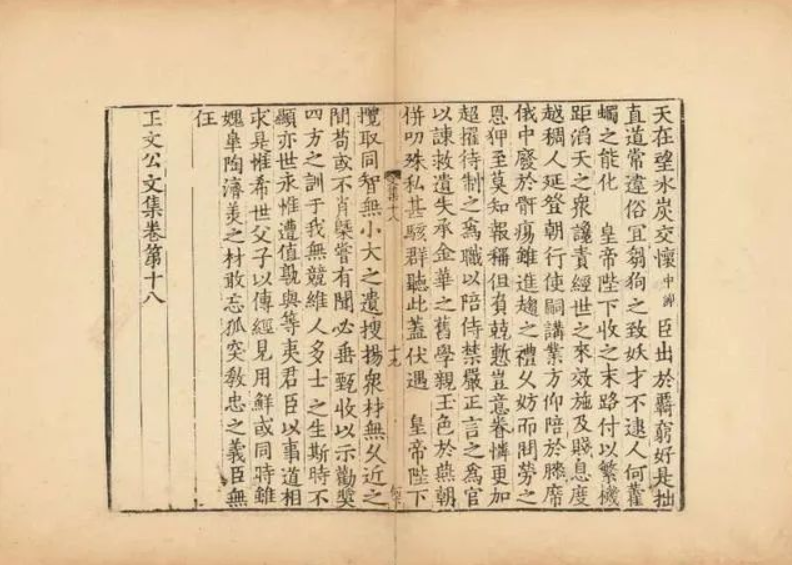 天在望冰炭交懷中謝 臣出於羈窮好是拙
直道常違俗宜芻狗之致妖才不逮人何藿
蠋之能化 皇帝陛下收之末路付以繁機
距滔天之衆讒責經世之來效施及賤息度
越稠人延登朝行使嗣講業方仰陪於勝席
俄中廢於骭瘍雖進趨之禮久妨而問勞之
恩狎至莫知報稱但負兢慙豈意眷憐更加
超擢待制之爲職以陪侍禁嚴正言之爲官
以諫救遺失承金華之舊學親玉色於燕朝
併叨殊私甚駭群聽此蓋伏遇 皇帝陛下
文集十八
十九
攬取同智無小大之遺搜揚衆材無久近之
間苟或不肖槩嘗有聞必垂甄收以示勸奬
四方之訓于我無競維人多士之生斯時不
顯亦世永惟遭值孰與等夷君臣以事道相
求是惟希世父子以傳經見用鮮或同時雖
媿臯陶濟美之材敢忘狐突敎忠之義臣無
任
王文公文集卷第十八